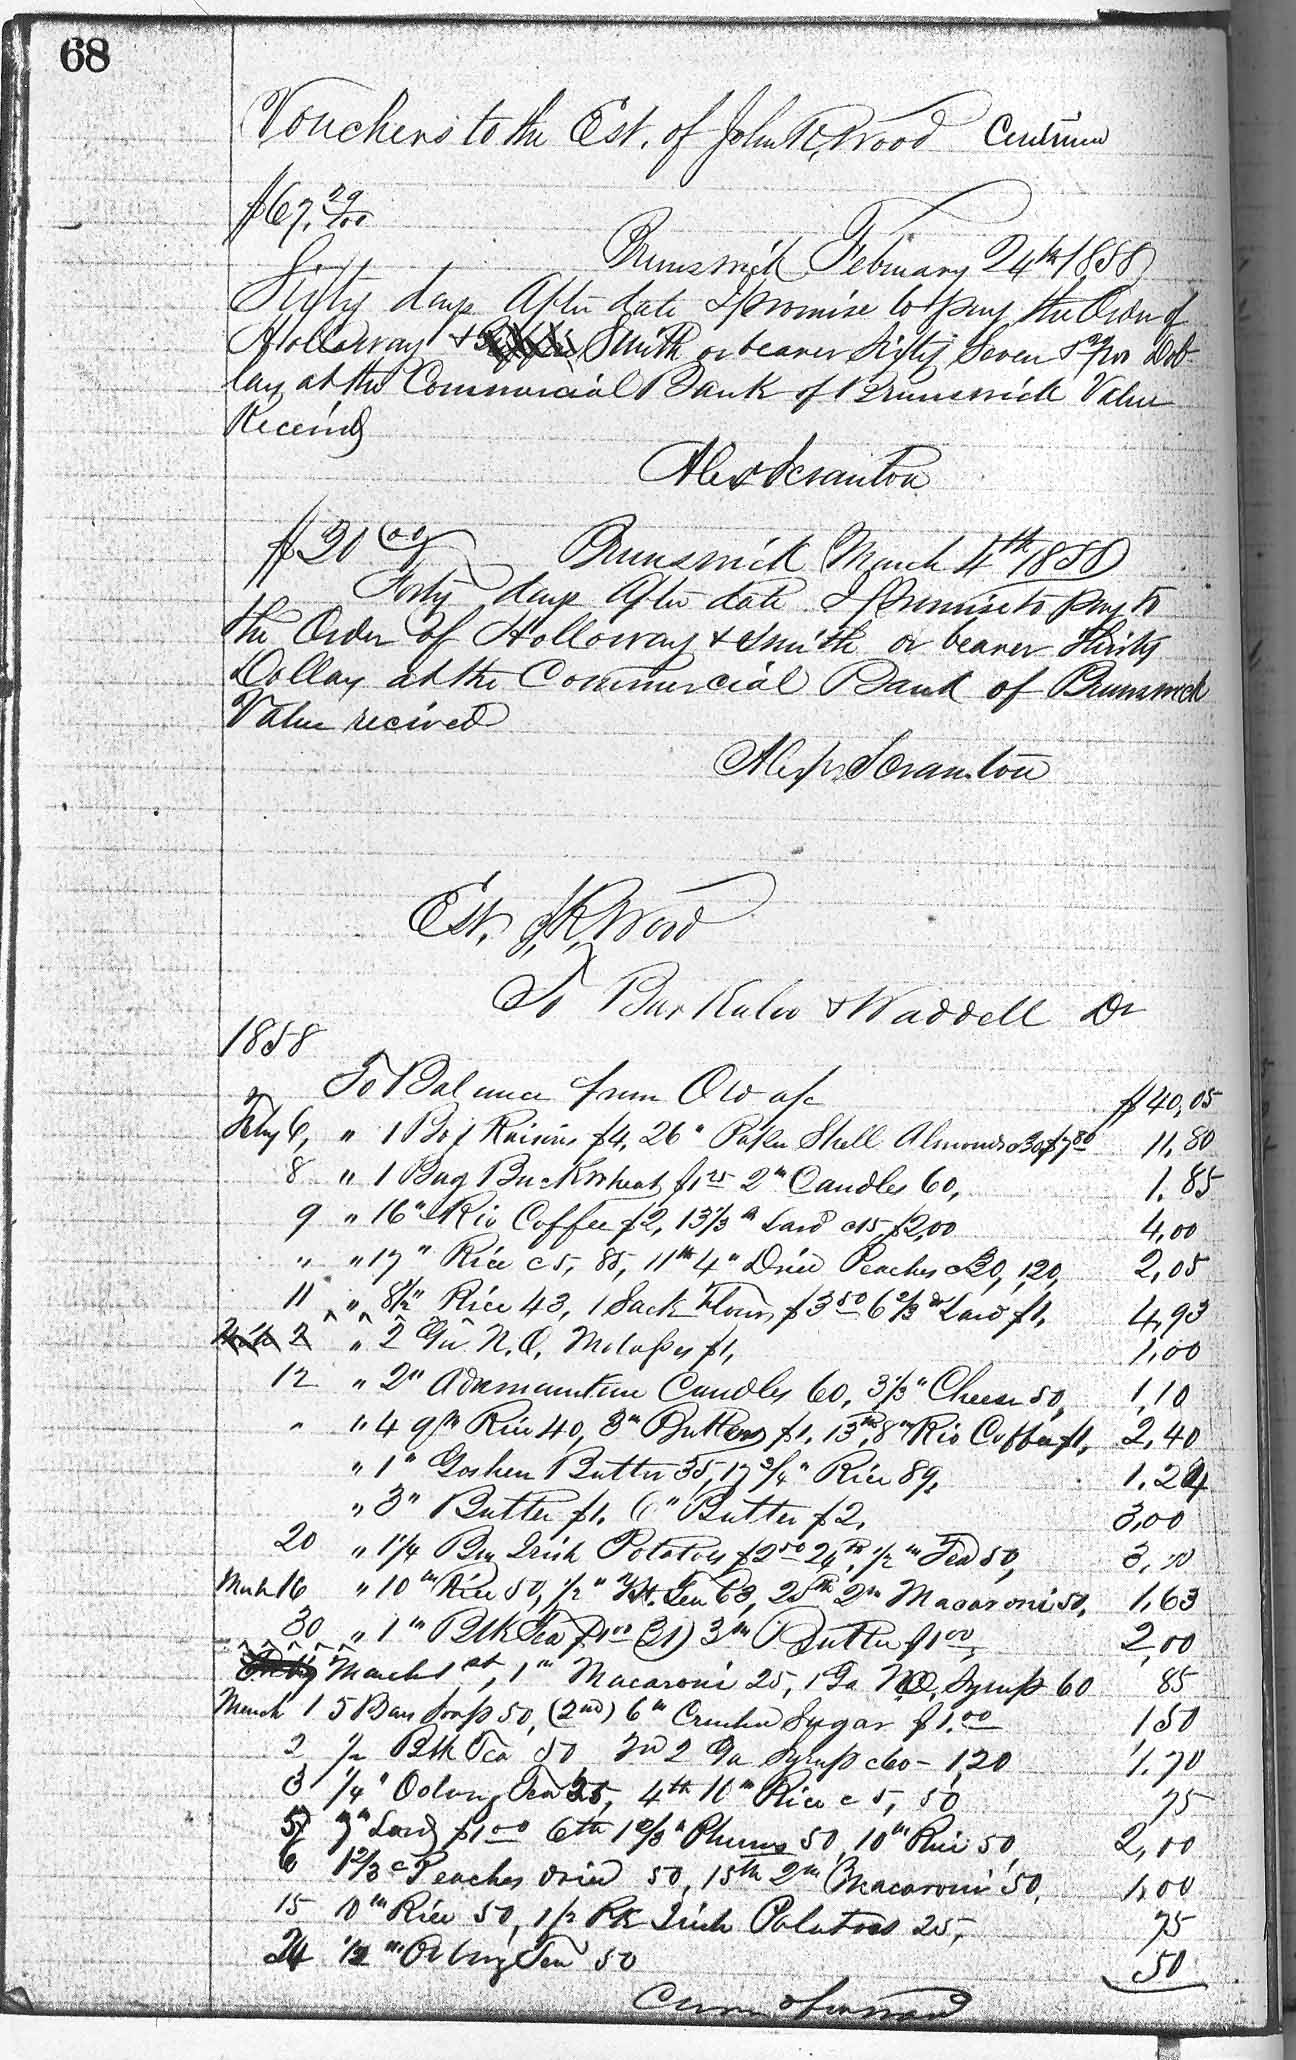 68
Vouchers to the Est. of John R. Wood Continued
$67.29/100
Brunswick February 24th 1858
Sixty days After date I promise to pay the Order of
Holloway & Smith or bearer Sixty Seven & 29/100 Dol-
lars at the Commercial Bank of Brunswick Value
Received
Alex Scranton
$30 00
Brunswick March 4th 1858
Forty days After date I Promise to pay to
the Order of Holloway & Smith or bearer Thirty
Dollars at the Commercial Bank of Brunswick
Value recived
Alexr Scranton
Est. J. R. Wood
To Barkuloo & Waddell Dr
1858
To Balance from Old a/c $40,05
Feby 6, " 1 Box Raisins $4, 26 " Paper Shell Almonds c30 $7 80 11,80
8 " 1 Bag Buckwheat $1 25 2 " Candles 60, 1,85
9 " 16 " Rio Coffee $2, 13 1/3 " Lard c15 $2,00 4,00
" " 17 " Rice c 5, 85, 11th 4 " Dried Peaches c30, 120, 2,05
11 " 8 1/2 " Rice 43, 1 Sack Flour $3 50 6 2/3 " Lard $1, 4,93
" 2 Ga N.O. Molasses $1, 1,00
12 " 2 " Adamantine Candles 60, 3 1/3 " Cheese 50, 1,10
" " 4 Rice 40, 3 " Butter $1, 13th, 8 " Rio Coffee $1, 2,40
" 1 " Goshen Butter 35, 17 3/4 " Rice 89, 1,24
" 3 " Butter $1, 6 " Butter $2, 3,00
20 " 1 1/4 Bu Irish Potatoes $2 50 24th, 1/2 " Tea 50, 3,00
March 16 " 10 " Rice 50, 1/2 " Tea 63, 25th 2 " Macaroni 50, 1,63
30 " 1 " Blk Tea $1 00 (31) 3 " Butter $1 00, 2,00
March 1st, 1 " Macaroni 25, 1 Ga N.O. Syrup 60 85
March 1 5 Bars Soap 50, (2nd) 6 " Crushed Sugar $1.00 1,50
2 1/2 Blk Tea 50 3rd 2 Ga Syrup c60 - 1,20 1,70
3 1/4 " Oolong Tea 25, 4th 10 " Rice c 5, 50 75
5 7 " Lard $1 00 6th 1 2/3 " Plums 50, 10 " Rice 50, 2,00
6 1 2/3 " Peaches dried 50, 15th 2 " Macaroni 50, 1,00
15 10 " Rice 50, 1/2 Pk Irish Potatoes 25, 75
24 1/2 " Oolong Tea 50 50
Carried forward